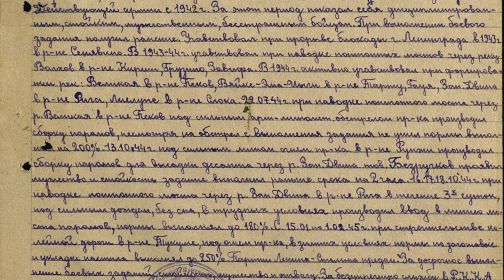 Действующей армии с 1942 г. За этот период показал себя дисциплинирован-
ным, стойким, мужественным, бесстрашным бойцом. При выполнении боевого
задания получил ранение. Участвовал при прорыве блокады г. Ленинграда в 1943 г.
в р-не Синявино. В 1943-44 г. участвовал при наводке понтонных мостов через реку
Волхов в р-не Кириши, Грузино, Завижа. В 1944 г. активно участвовал при форсирова-
нии рек: Великая в р-не Псков, Вяйке-Эма-Йыги в р-не Тырву, Гауя, Зап.Двина
в р-не Рига, Лиелупе в р-не Слока. 29.07.44 г. при наводке понтонного моста через р.
Великая в р-не Псков под сильным арт-миномет. обстрелом пр-ка производил
сборку паромов, несмотря на обстрел с выполнения задания не ушел нормы выпол-
200%. 13.10.44 г. под сильным мином. огнем пр-ка в р-не производил
сборку паромов для высадки десанта через р. Зап.Двина тов. проявил
мужество и стойкость задание выполнил раньше срока на 2 часа. 16.17.18.10.44 г. при
наводке понтонного моста через р. Зап.Двина в р-не Рига в течение 3х суток,
под сильным дождем, без сна, в трудных условиях, производил ввод в линию мо-
ста паромов, нормы выполнял до 180%. С 15.01 по 1.02.45 г. при строительстве ко-
лейной дороги в р-не под огнем пр-ка, в зимних условиях нормы по заготовке
и укладке настила выполнял до 250%. Партии Ленина-Сталина предан. За образцовое выпол-
нение боевых заданий мужество и отвагу. За безупречную службу в РККА